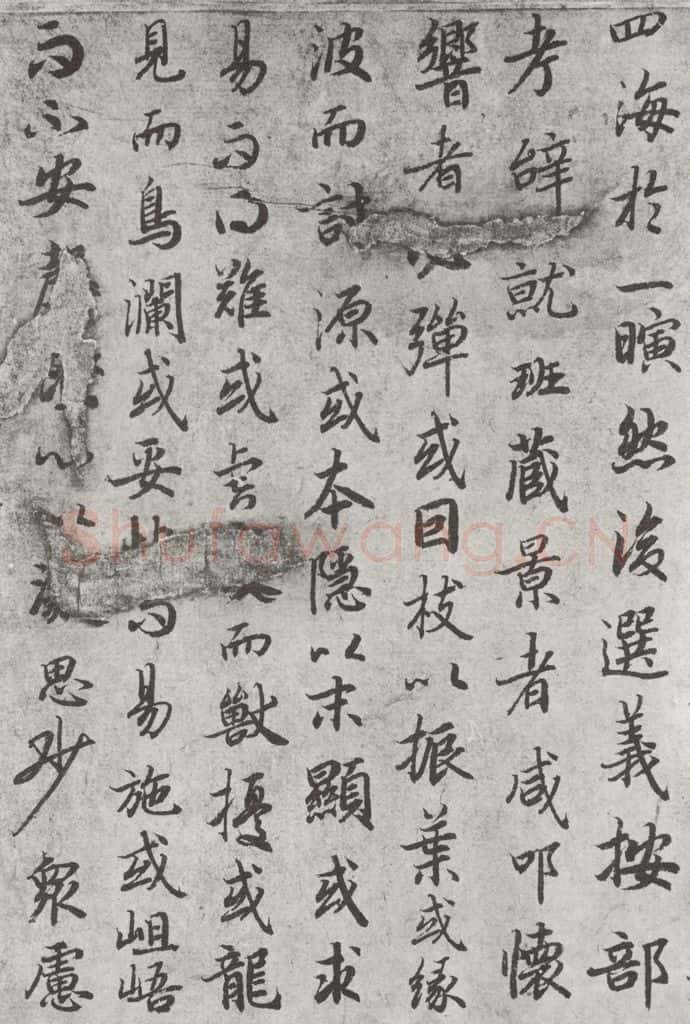 四海於一瞚然後選義按部
考辭就班藏景者咸叩懷
響者必彈或因枝以振葉或緣
波而討源或本隱以末顯或求
易而得難或虎而獸擾或龍
見而鳥瀾或妥而易施或岨峿
而不安思眇眾慮
Shufawang.CN